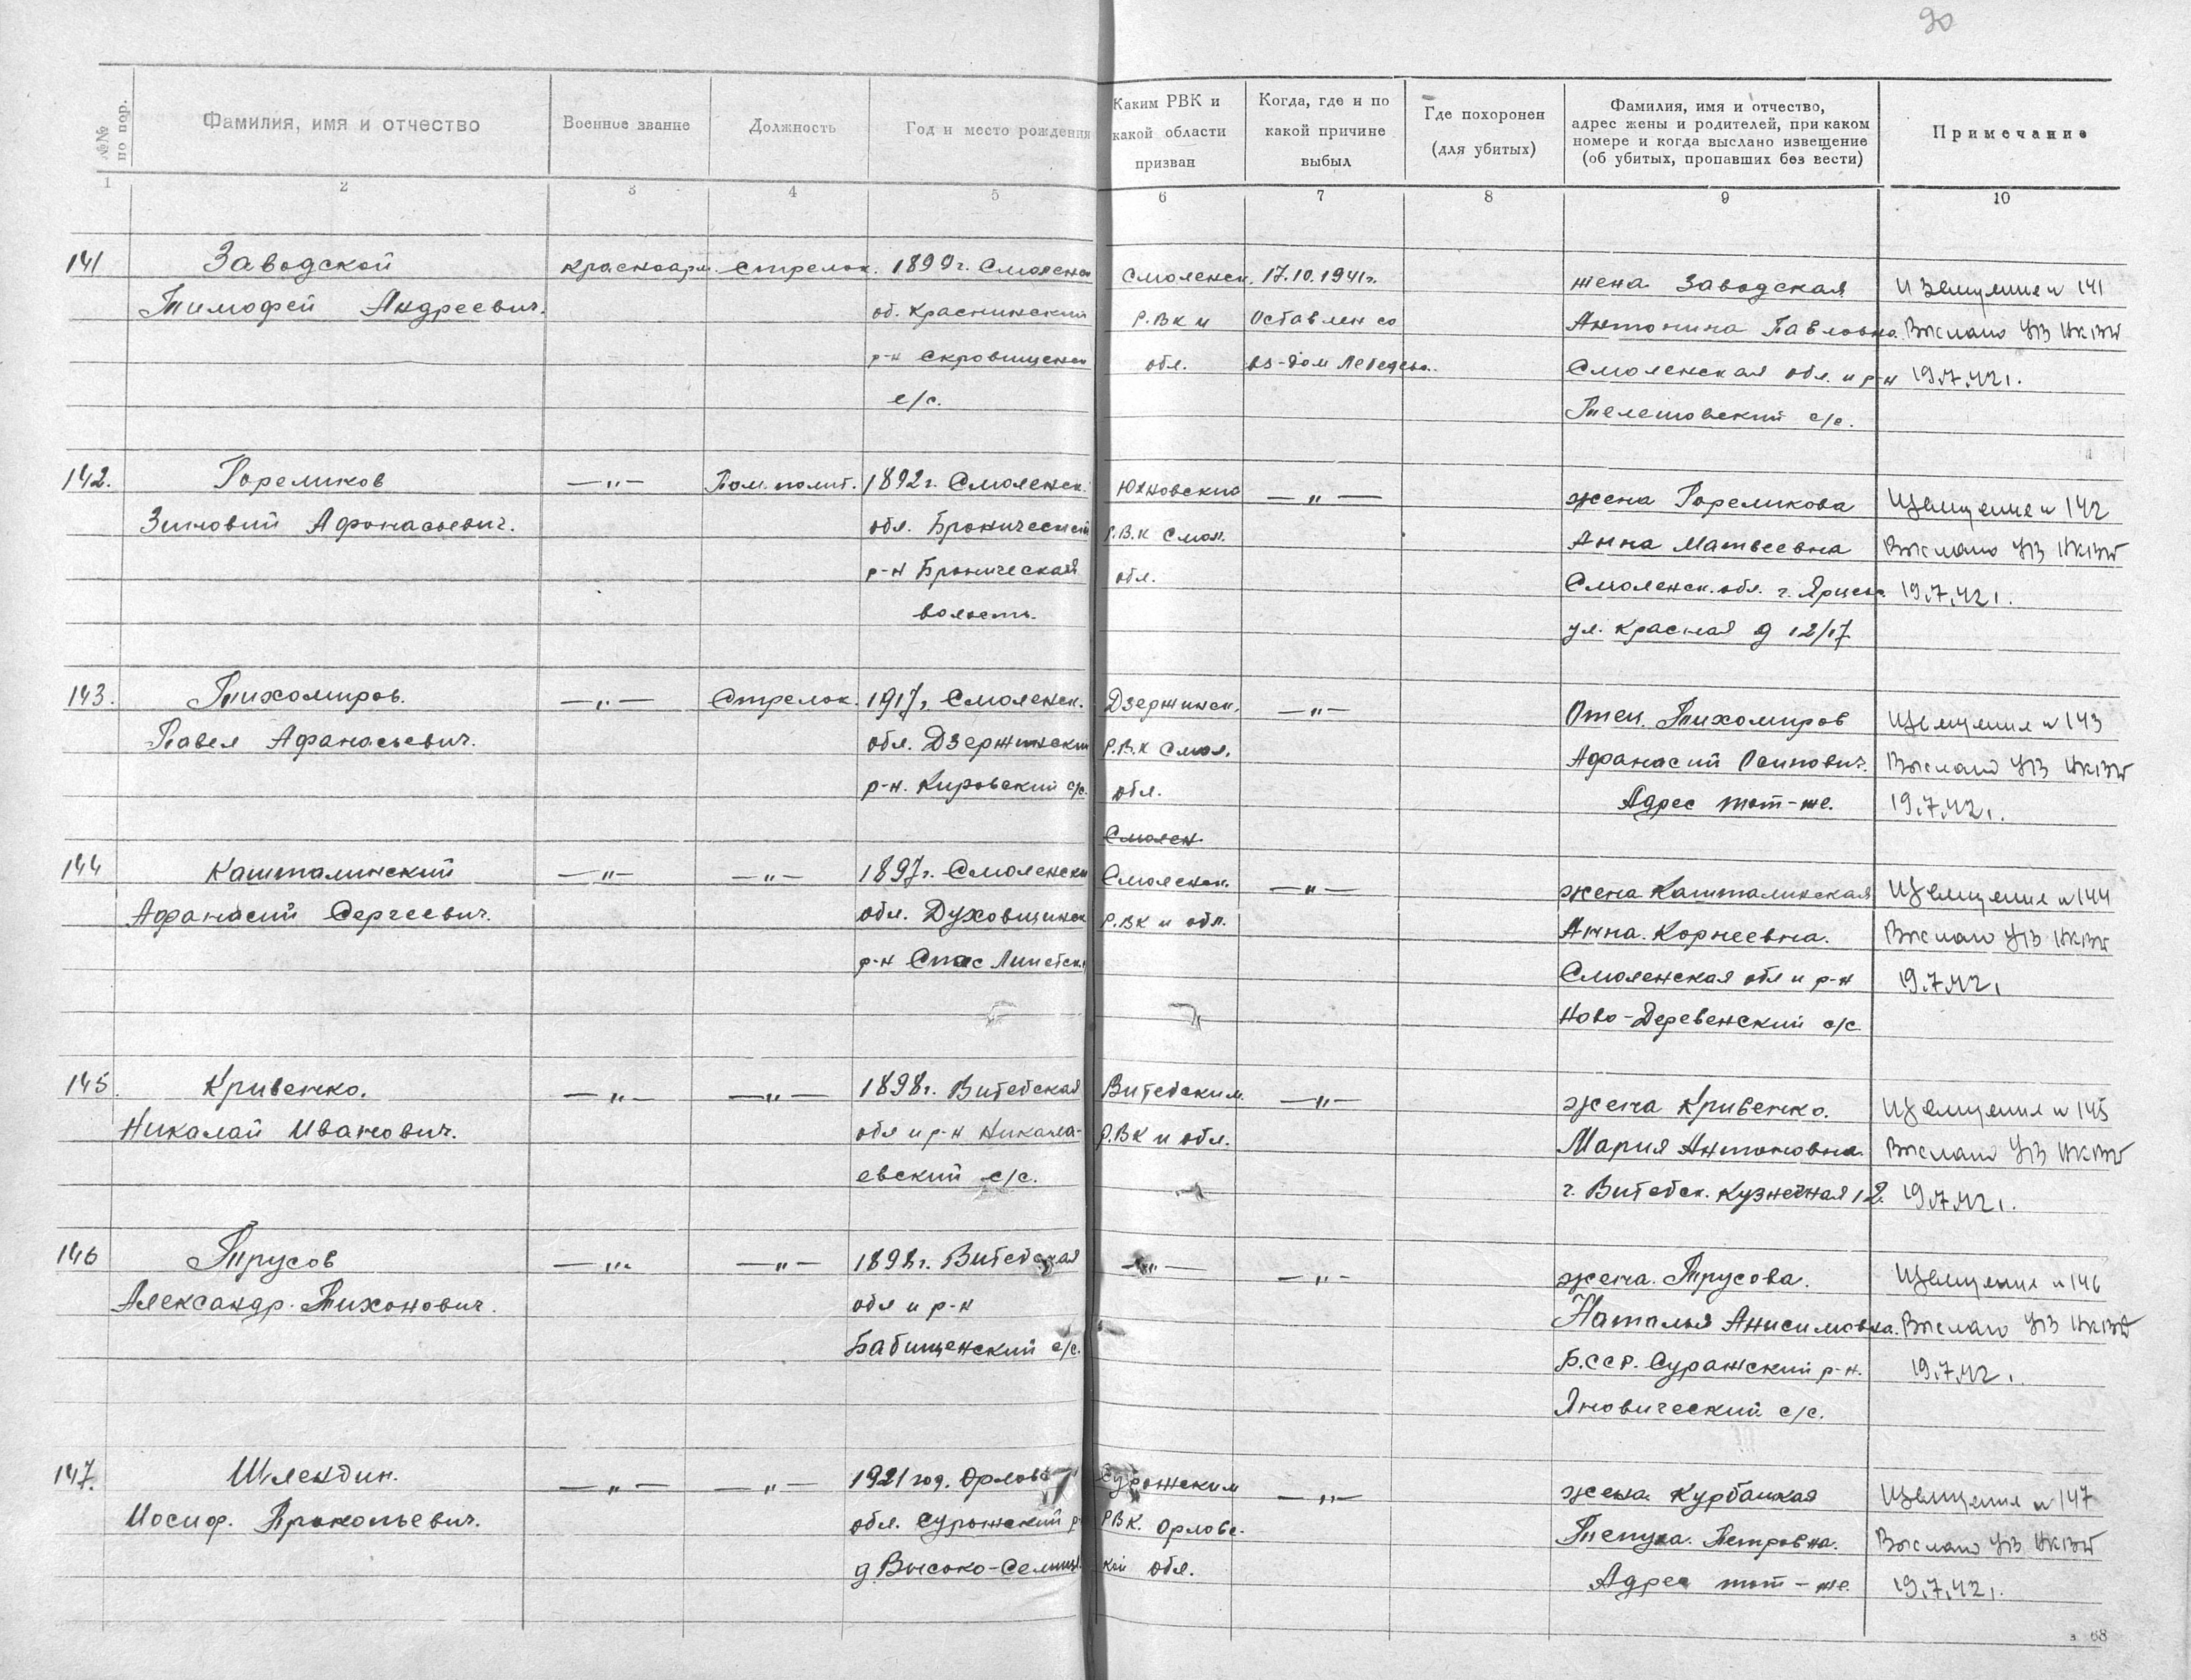 90
№№ по пор.
Фамилия, имя и отчество
Военное звание
Должность
Год и место рождения
Каким РВК и какой области призван
Когда, где и по какой причине выбыл
Где похоронен (для убитых)
Фамилия, имя и отчество, адрес жены и родителей, при каком номере и когда выслано извещение (об убитых, пропавших без вести)
Примечание
1 2 3 4 5 6 7 8 9 10
141 Заводской красноарм. стрелок. 1899г. Смоленск Смоленск. 17.10.1941г. жена Заводская Извещение н 141
Тимофей Андреевич. об. Краснинский Р.Вк и Оставлен со Антонина Павловна. Выслано
р-н Скровищенск обл. вз-дом Лебедева. Смоленская обл. и р-н 19.7.42г.
с/с. Телешовский с/с.
142. Гореликов —"— Пом. полит. 1892г. Смоленск. Юхновским —"— жена Гореликова Извещение н 142
Зиновий Афонасьевич. обл. Бронический Р.В.К Смол. Анна Матвеевна Выслано
р-н Броническая обл. Смоленск. обл. г. Ярцево. 19.7.42г.
волость. ул. Красная д 12/17
143. Тихомиров. —"— Стрелок. 1917г. Смоленск. Дзержинск. —"— Отец. Тихомиров Извещение н 143
Павел Афанасьевич. обл. Дзержинский Р.В.К Смол. Афанасий Осипович. Выслано
р-н. Кировский с/с. обл. Адрес тот-же. 19.7.42г.
Смолен
144 Кашталинский —"— —"— 1897г. Смоленск Смоленск. —"— жена Кашталинская Извещение н 144
Афанасий Сергеевич. обл. Духовщинск Р.ВК и обл. Анна. Корнеевна. Выслано
р-н Спас Липецк. Смоленская обл и р-н 19.7.42г
Ново-Деревенский с/с
145. Кривенко. —"— —"— 1898г. Витебская Витебским —"— жена Кривенко. Извещение н 145
Николай Иванович. обл и р-н Никола- Р.ВК и обл. Мария Антоновна. Выслано
евский с/с. г. Витебск. Кузнечная 12. 19.7.42г.
146 Трусов —"— —"— 1898г. Витебская —"— —"— жена. Трусова. Извещение н 146
Александр. Тихонович. обл и р-н Наталья Анисимовна. Выслано
Бабищенский с/с. Б.ССР. Суражский р-н. 19.7.42г.
Яновический с/с.
147. Шлендин. —"— —"— 1921 год. Орловс Суражским —"— жена Курбацкая Извещение н 147
Иосиф. Прокопьевич. обл. Суражский р РВК. Орловс. Петровна. Выслано
д. Высоко-Селищ кой обл. Адрес тот-же 19.7.42г.
з 68